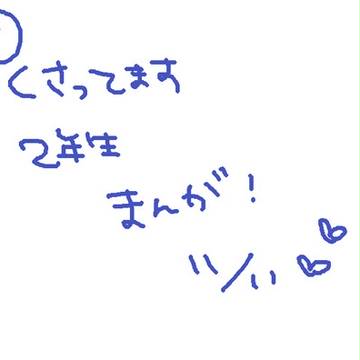 くさってます
2年生
まんが!